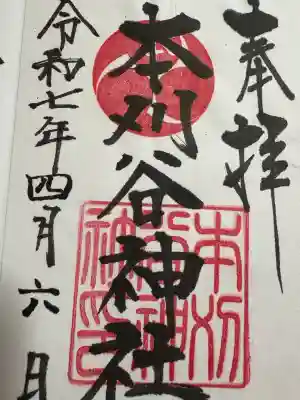 奉拝
本刈谷神社
令和七年四月六日
本刈
谷神
社印